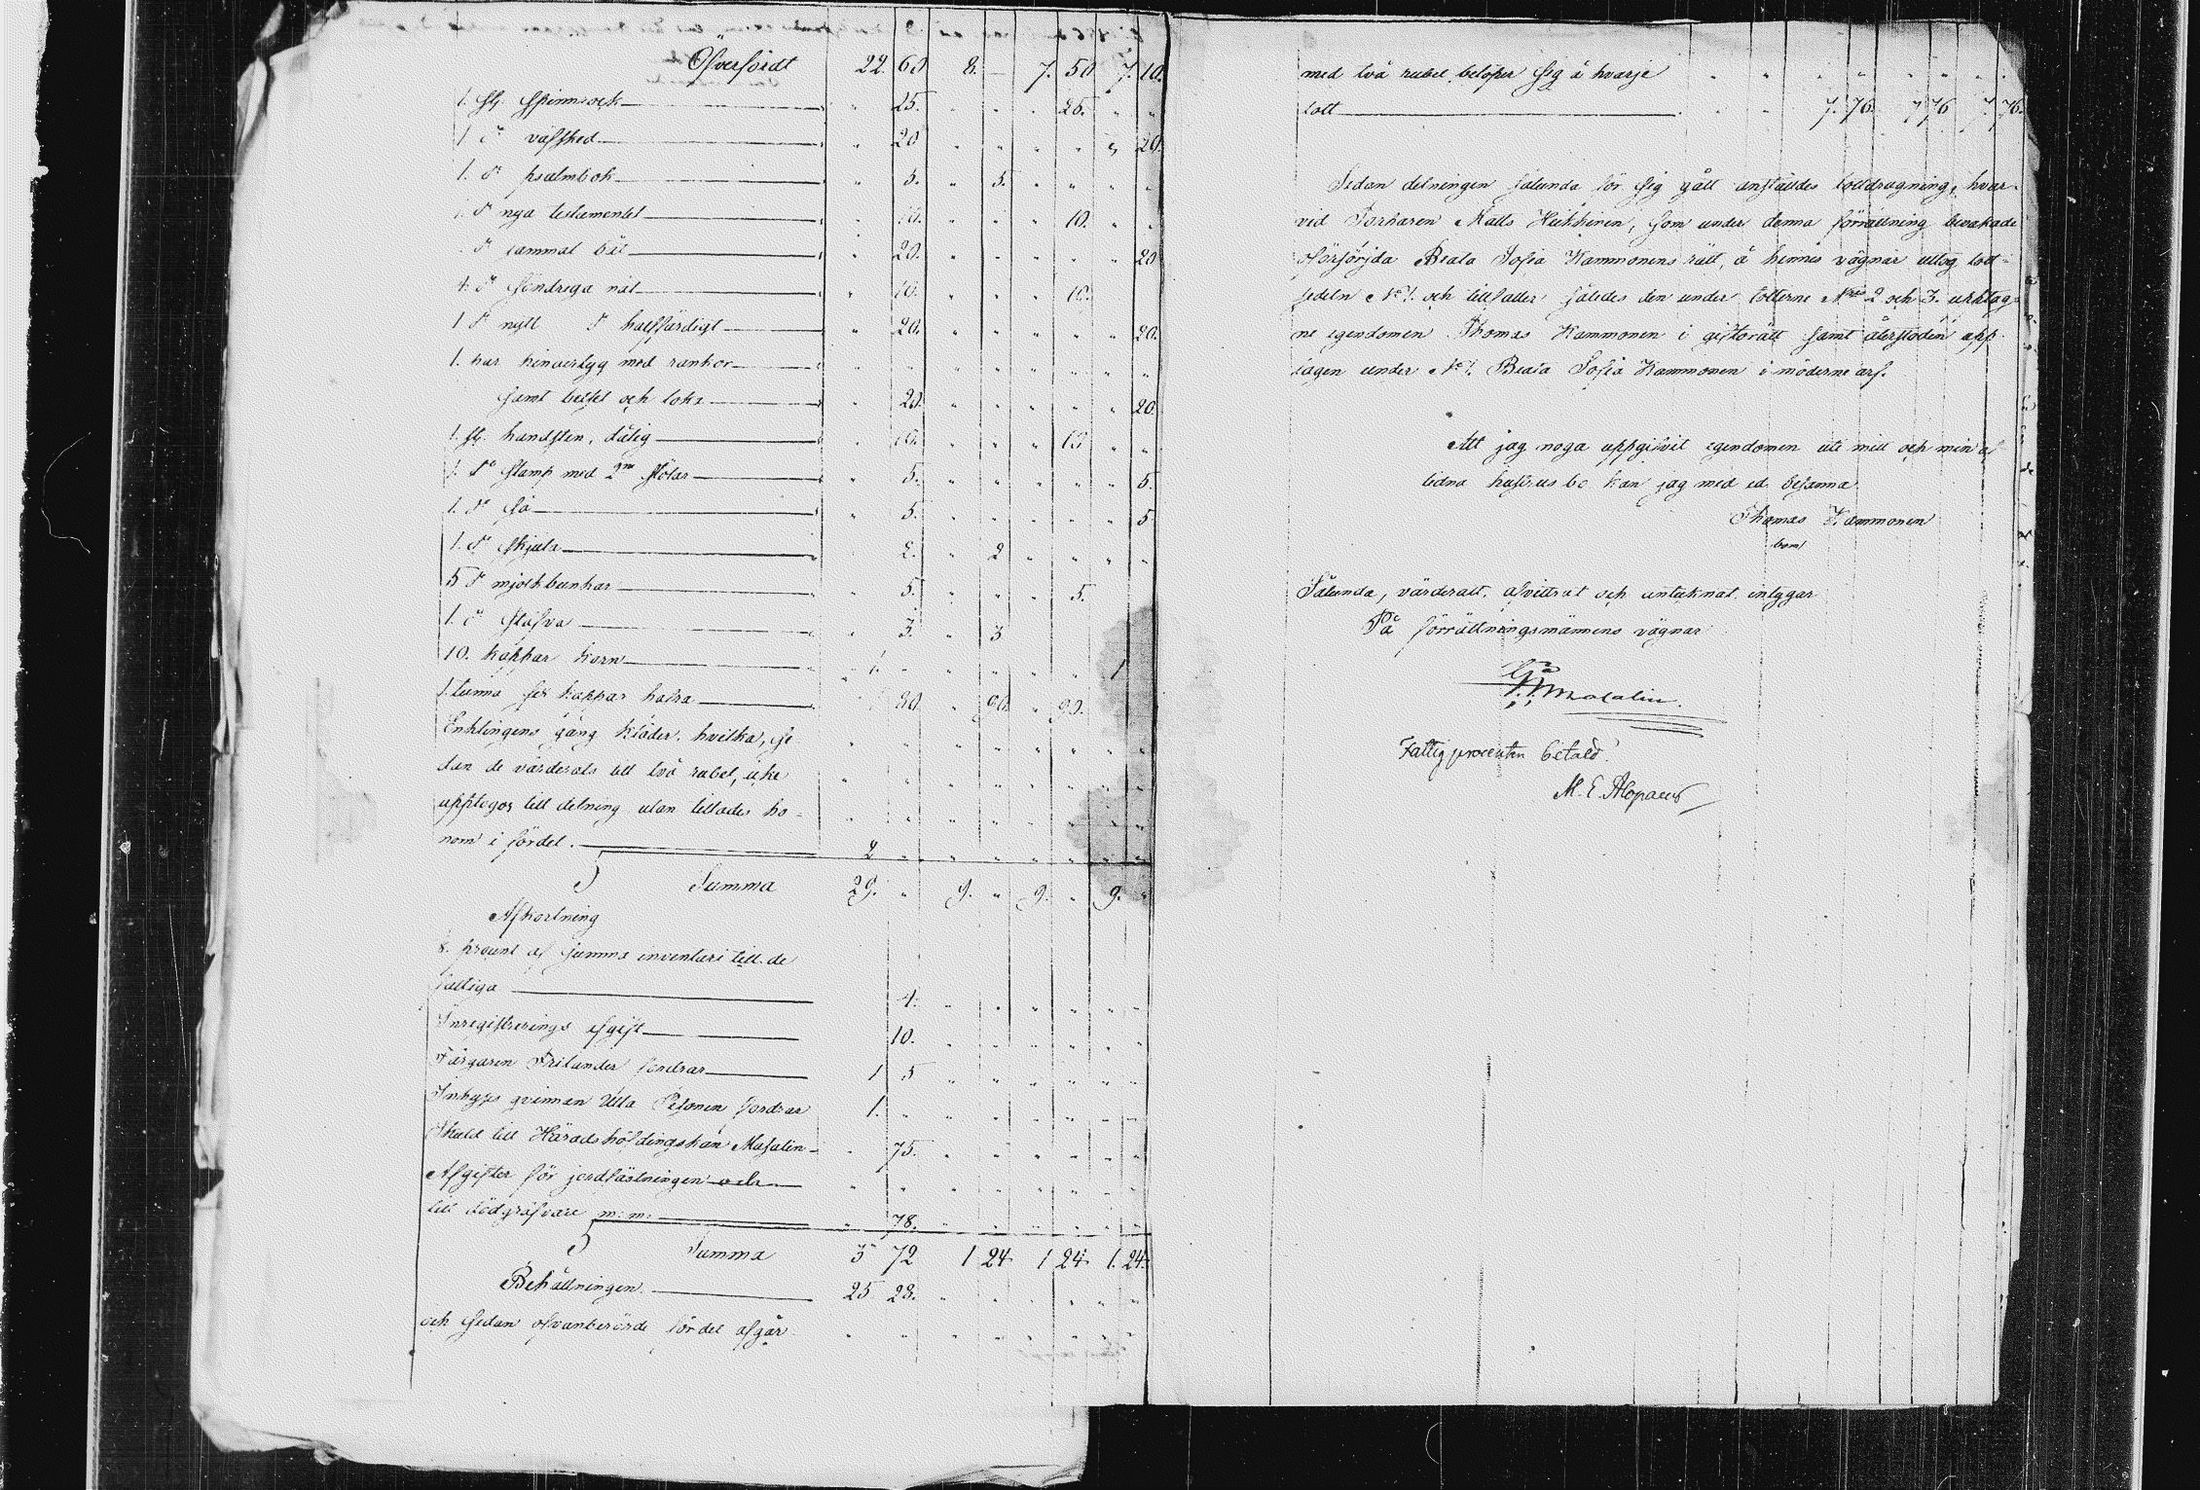 Öfverfördt 22. 60 8. — 7. 50 7. 10.
1. st. spinnrock 25. 25.
1 d:o väfsked 20 20.
1. d:o psalmbok 5. 5.
d:o nya testamentet 10. 10.
d:o gammal båt 20. 20
4. d:o söndriga nät 10. 10.
1 d:o nytt d:o halffärdigt 20. 20.
1. par
samt betsel och loka 20. 20.
1. st. handsten, dålig 10. 10
1. d:o stamp med 2:ne stötar 5. 5.
1. d:o så 5. 5
1. d:o skjula 2. 2
5 d:o mjölkbunkar 5. 5.
1. d:o stäfva 3. 3
10. kappar korn 1. 1
1. tunna sex kappar hafra 80. 90. 90.
Enklingens gång kläder, hvilka, se
dan de värderats till två rubel, icke
upptogos till delning utan tillades ho-
nom i fördel. 2
Summa 29. 9. 9. 9.
Afkortning
procent af summa inventarii till de
fattiga 4.
Inregistrerings afgift 10.
Färgaren Frilander fordrar 1 5
Inhyses qvinnan Ulla Pesonen fordrar 1.
Skuld till Häradshöfdingskan Masalin 75.
Afgifter för jordfästningen och
till dödgräfvare m: m: 78.
Summa 3 72 1 24 1 24 1. 24.
Behållningen 25 28.
och sedan ofvanberörde fördel afgår
med två rubel, belöper sig å hvarje
lott 7. 76. 7 76 7. 76.
Sedan delningen sålunda för sig gått anställdes lottdragning, hvar-
vid Torparen Matts Heikkinen, som under denna förrättning bevakade
oförsörjda Beata Sofia Kammonens rätt, å hennes vägnar uttog lott-
sedeln N:o 1. och tillfaller således den under lotterne N:ris 2 och 3. upptag-
ne egendomen Thomas Kammonen i giftorätt samt återstoden upp-
tagen under N:o 1. Beata Sofia Kammonen i möderne arf.
Att jag noga uppgifvit egendomen uti mitt och min af
lidna hustrus bo kan jag med ed besanna.
Thomas Kammonen
Sålunda, värderat, afvittrat och antecknat, intygar
På förrättningsmännens vägnar
Masalin.
Fattigprocenten betald.
M. E. Alopaeus